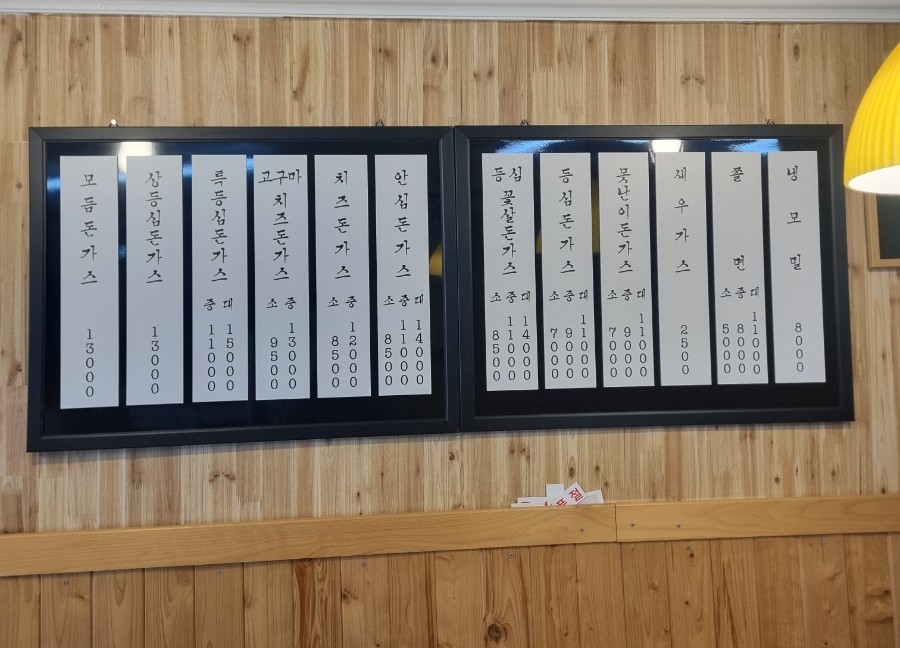 모듬돈가스 13000
상등심돈가스 13000
특등심돈가스 중 11000 대 15000
고구마 치즈돈가스 소 9500 중 13000
치즈돈가스 소 8500 중 12000
안심돈가스 소 8500 중 11000 대 14000
등심 꽃살돈가스 소 8500 중 11000 대 14000
등심돈가스 소 7000 중 9000 대 11000
못난이돈가스 소 7000 중 9000 대 11000
새우가스 2500
쫄면 소 5000 중 8000 대 11000
냉모밀 8000
품절